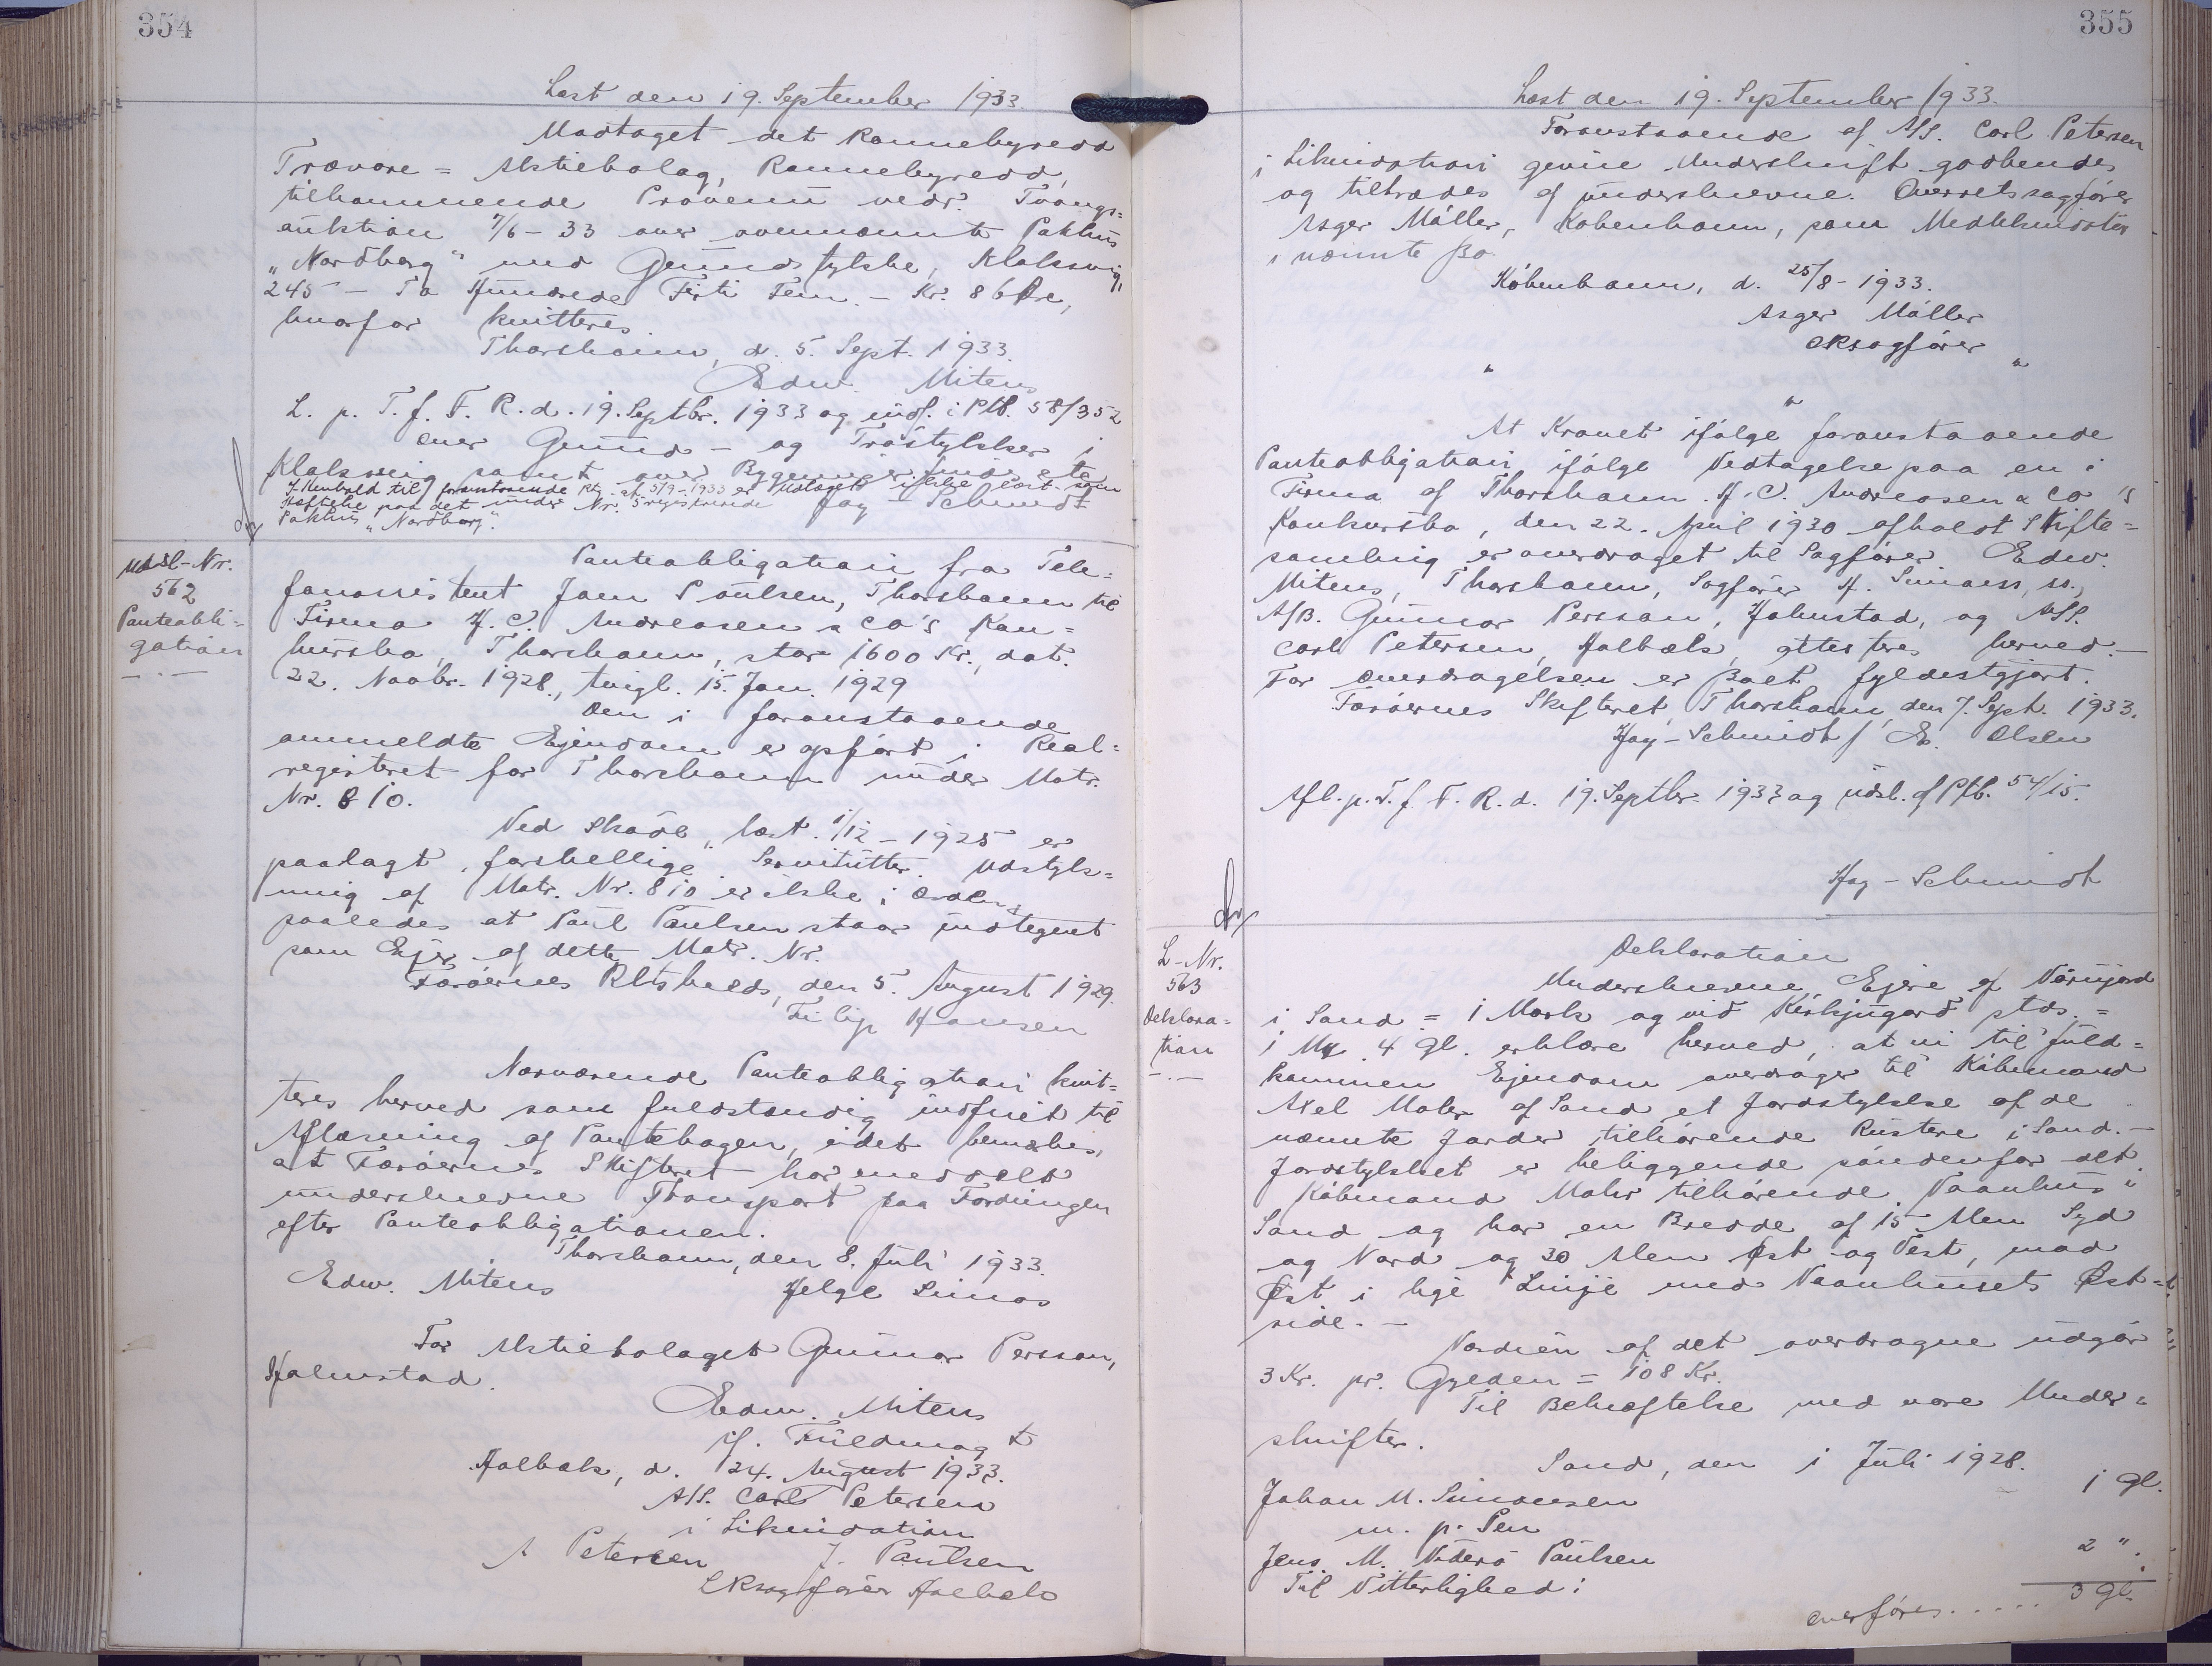 354
Læst den 19. September 1933.
Modtaget det Ronnebyredd
Trævare = Aktiebolag, Ronnebyredd,
tilkommende Provenu vedr. Tvangs=
auktion 7/6 - 33 over ovennævnte Pakhus
"Nordberg" med Grundstykke, Klaksvig,
245 - To Hundrede Firti Fem. - Kr. 86 Øre,
hvorfor kvitteres.
Thorshavn, d. 5. Sept. 1933.
Edw. Mitens
L. p. T. f. F. R. d. 19. Septbr. 1933 og indf. i Ptb. 58/352
over Grund - og Træstykker i
Klaksvig samt over Bygninger
I Henhold til foranstaaende Ktg. af 5/9-1933 er Udlæget ikke læst som
Hæftelse paa det under Nr. 5 registrerede
Pakhus "Nordberg".
Hay - Schmidt
Udsl-Nr.
562
Panteobli=
gation
Panteobligation fra Tele=
fonassistent Joen Poulsen, Thorshavn til
Firma H. C. Andreasen & Co's Kon=
kursbo, Thorshavn, stor 1600 Kr., dat.
22. Novbr. 1928., tingl. 15. Jan. 1929
Den i foranstaaende
ommeldte Ejendom er opført i Real=
registeret for Thorshavn under Matr.
Nr. 810.
Ved Skøde, læst 1/12 - 1925 er
paalagt forskellige Servitutter. Udstyk=
ning af Matr. Nr. 810 er ikke i Orden,
saaledes at Poul Poulsen staar indtegnet
som Ejer af dette Matr. Nr.
Færøernes Rtskreds, den 5. August 1929.
Filip Hansen
Nærværende Panteobligation kvit=
teres herved som fuldstændig indfriet til
Aflæsning af Pantebogen, idet bemærkes,
at Færøernes Skifteret har meddelt
underskrevne Transport paa Fordringen
efter Panteobligationen.
Thorshavn, den 8. Juli 1933.
Edw. Mitens Helge Simos
For Aktiebolaget Gunnar Persson,
Halmstad.
Edw. Mitens
if. Fuldmagt
Holbæk, d. 24. August 1933.
A/S. Carl Petersen
i Likvidation
A Petersen J. Poulsen
LRsagfører Holbæk
355
Læst den 19. September 1933.
Foranstaaende af A/S. Carl Petersen
i Likvidation givne Underskrift godkendes
og tiltrædes af underskrevne Overretssagfører
Asger Møller, København, som Medlikvidator
i nævnte Bo.
København, d. 25/8 - 1933.
Asger Møller
ORsagfører
" " "
At Kravet ifølge foranstaaende
Panteobligation ifølge Vedtagelse paa en i
Firma af Thorshavn H. C. Andreasen & Co's
Konkursbo, den 22. April 1930 afholdt Skifte=
samling er overdraget til Sagfører Edw.
Mitens, Thorshavn, Sagfører H. Simos, ss.,
A/B. Gunnar Persson, Halmstad, og A/S.
Carl Petersen, Holbæk, attesteres herved. -
For Overdragelsen er Boet fyldestgjort.
Færøernes Skifteret, Thorshavn, den 7. Sept. 1933.
Hay - Schmidt / E. Olsen
Afl. p. T. f. F. R. d. 19. Septbr. 1933 og udsl. af Ptb. 54/15.
Hay - Schmidt
L-Nr.
563
Deklara=
tion
Deklaration
Underskrevne Ejere af
i Sand = 1 Mark og við Kirkjugard stds. =
1 Mk. 4 Gl. erklære herved, at vi til fuld=
kommen Ejendom overdrager til Købmand
Axel Mohr af Sand et Jordstykke af de
nævnte Jorder tilhørende Rustere i Sand. -
Jordstykket er beliggende søndenfor det
Købmand Mohr tilhørende Vaanhus i
Sand og har en Bredde af 15 Alen Syd
og Nord og 30 Alen Øst og Vest, mod
Øst i lige Linje med Vaanhusets Øst=
side. -
Værdien af det overdragne udgør
3 Kr. pr. Gylden = 108 Kr.
Til Bekræftelse med vore Under=
skrifter.
Sand, den 1 Juli 1928.
Johan M. Simonsen 1 Gl.
m. p. Pen
Jens M. Viderø Poulsen 2 ".
Til Vitterlighed: 3 Gl.
overføres.....